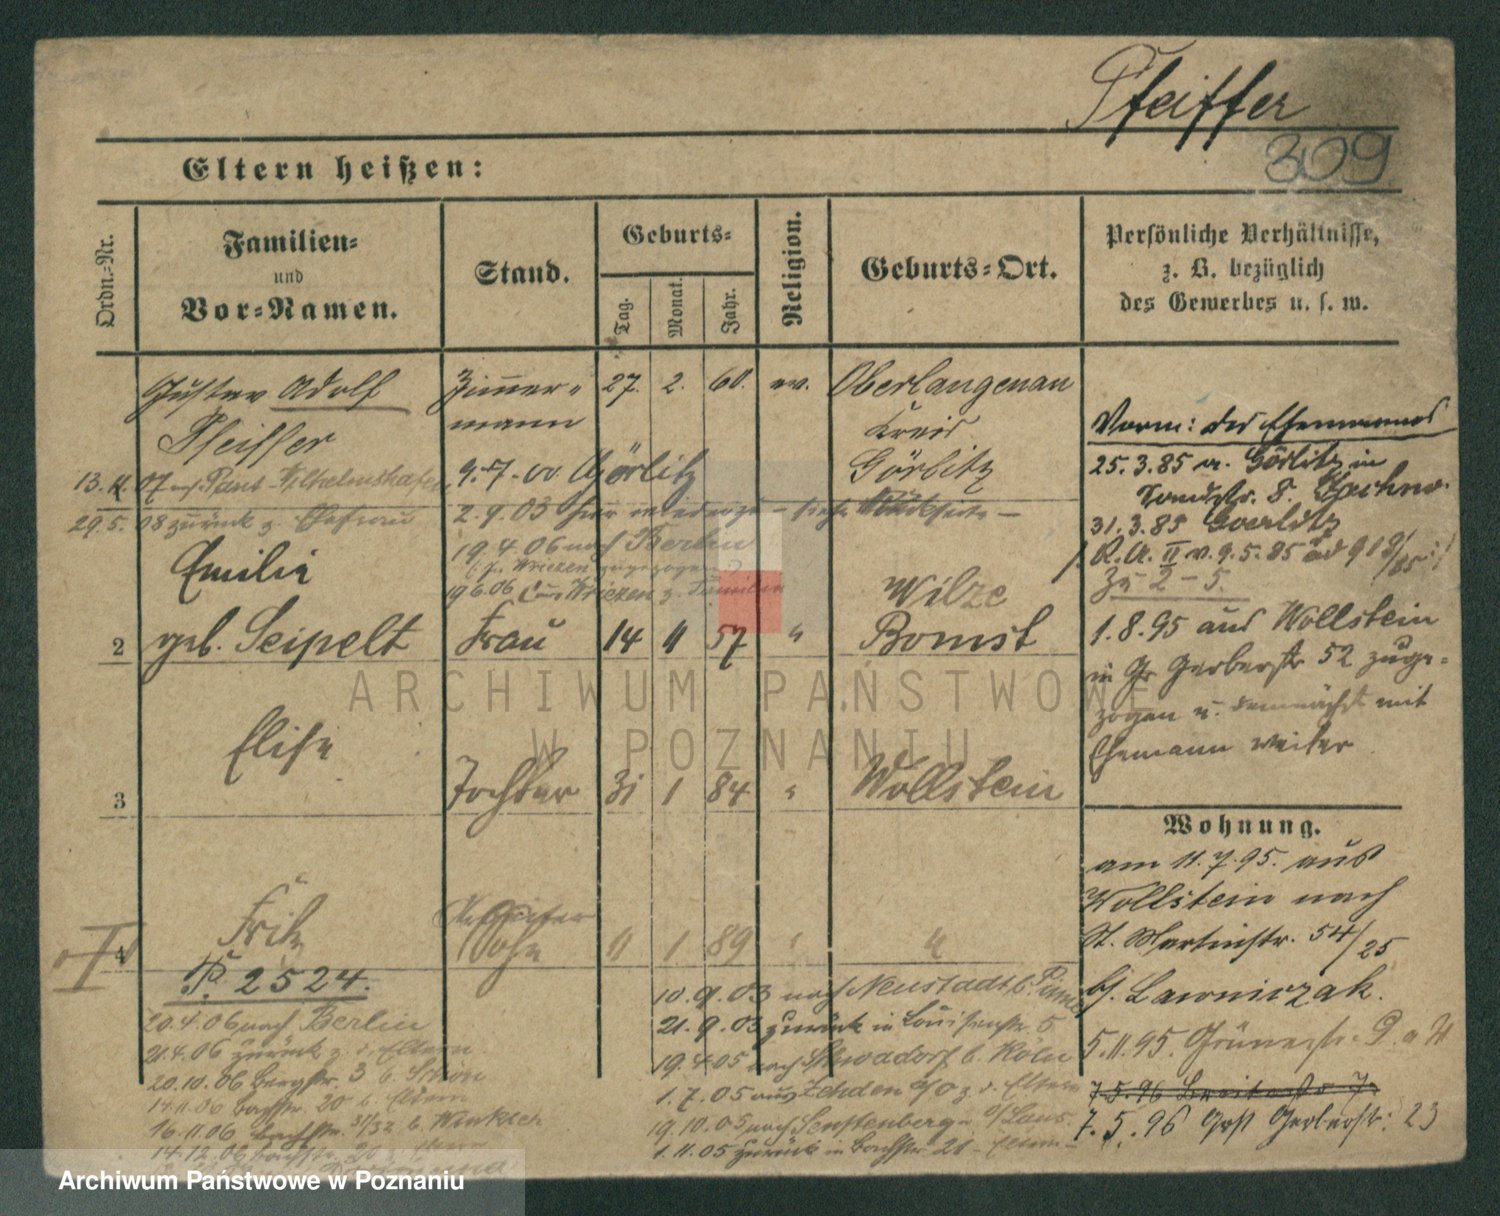 Pfeiffer
309
Eltern heißen:
Ordn.-Nr.
Familien-
und
Vor-Namen.
Stand.
Geburts-
Tag.
Monat.
Jahr.
Religion.
Geburts-Ort.
Persönliche Verhältnisse,
z. B. bezüglich
des Gewerbes u. s. w.
Gustav Adolf
Pfeiffer
Zimmer-
mann
27. 2. 60. ev.
Oberlangenau
Kreis
Görlitz
13. 11. 07 nach Wilhelmshafen
29.5.08 zurück z. Ehefrau
9.7.00 Görlitz
2.9.03 hier wieder siehe Rückseite
19.4.06 nach Berlin
19.6.06 aus Wriezen z. Familie
Emilie
2 geb. Seipelt Frau 14 11 57 "
Wilze
Bomst
3 Elise Tochter 31 1 84 " Wollstein
4 Fritz Sohn 11 1 89 " "
P. 2524.
20.4.06 nach Berlin
21.4.06 zurück z. d. Eltern
20.10.06 Bergstr. 3 b. Schön
14.11.06 Bachstr. 20 b. Eltern
16.11.06 Bachstr. 31/32 b. Winkler
14.12.06 Bachstr. 20
10.9.03 nach Neustadt b. Pinne
21.9.03 zurück in Louisenstr. 5
19.4.05 nach b. Köln
1.7.05 aus Zehden z. d. Eltern
19.10.05 nach Senftenberg
1.11.05 zurück in Bachstr. 20 Eltern
Vorm: des Ehemannes
25.3.85 v. Görlitz in
8.
31.3.85 Goerlitz
R.A. II v. 9.5.85 ad 919/85
Zu 2-5.
1.8.95 aus Wollstein
in Gr. Gerberstr. 52 zuge-
zogen u. demnächst mit
Ehemann weiter
Wohnung.
am 11.7.95. aus
Wollstein nach
St. Martinstr. 54/25
bei Lawnizak.
5.11.95. Grünestr.
7.5.96
7.5.96 Groß Gerberstr: 23
ARCHIWUM PAŃSTWOWE
W POZNANIU
Archiwum Państwowe w Poznaniu